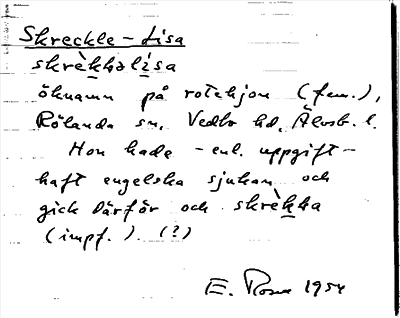 Skreckle-Lisa
skrèkkəlìsa
öknamn på rotehjon (fem.),
Rölanda sn, Vedbo hd, Älvsb. l.
Hon hade - enl. uppgift -
haft engelska sjukan och
gick därför och skrèkka
(impf.). (?)
E. 1954